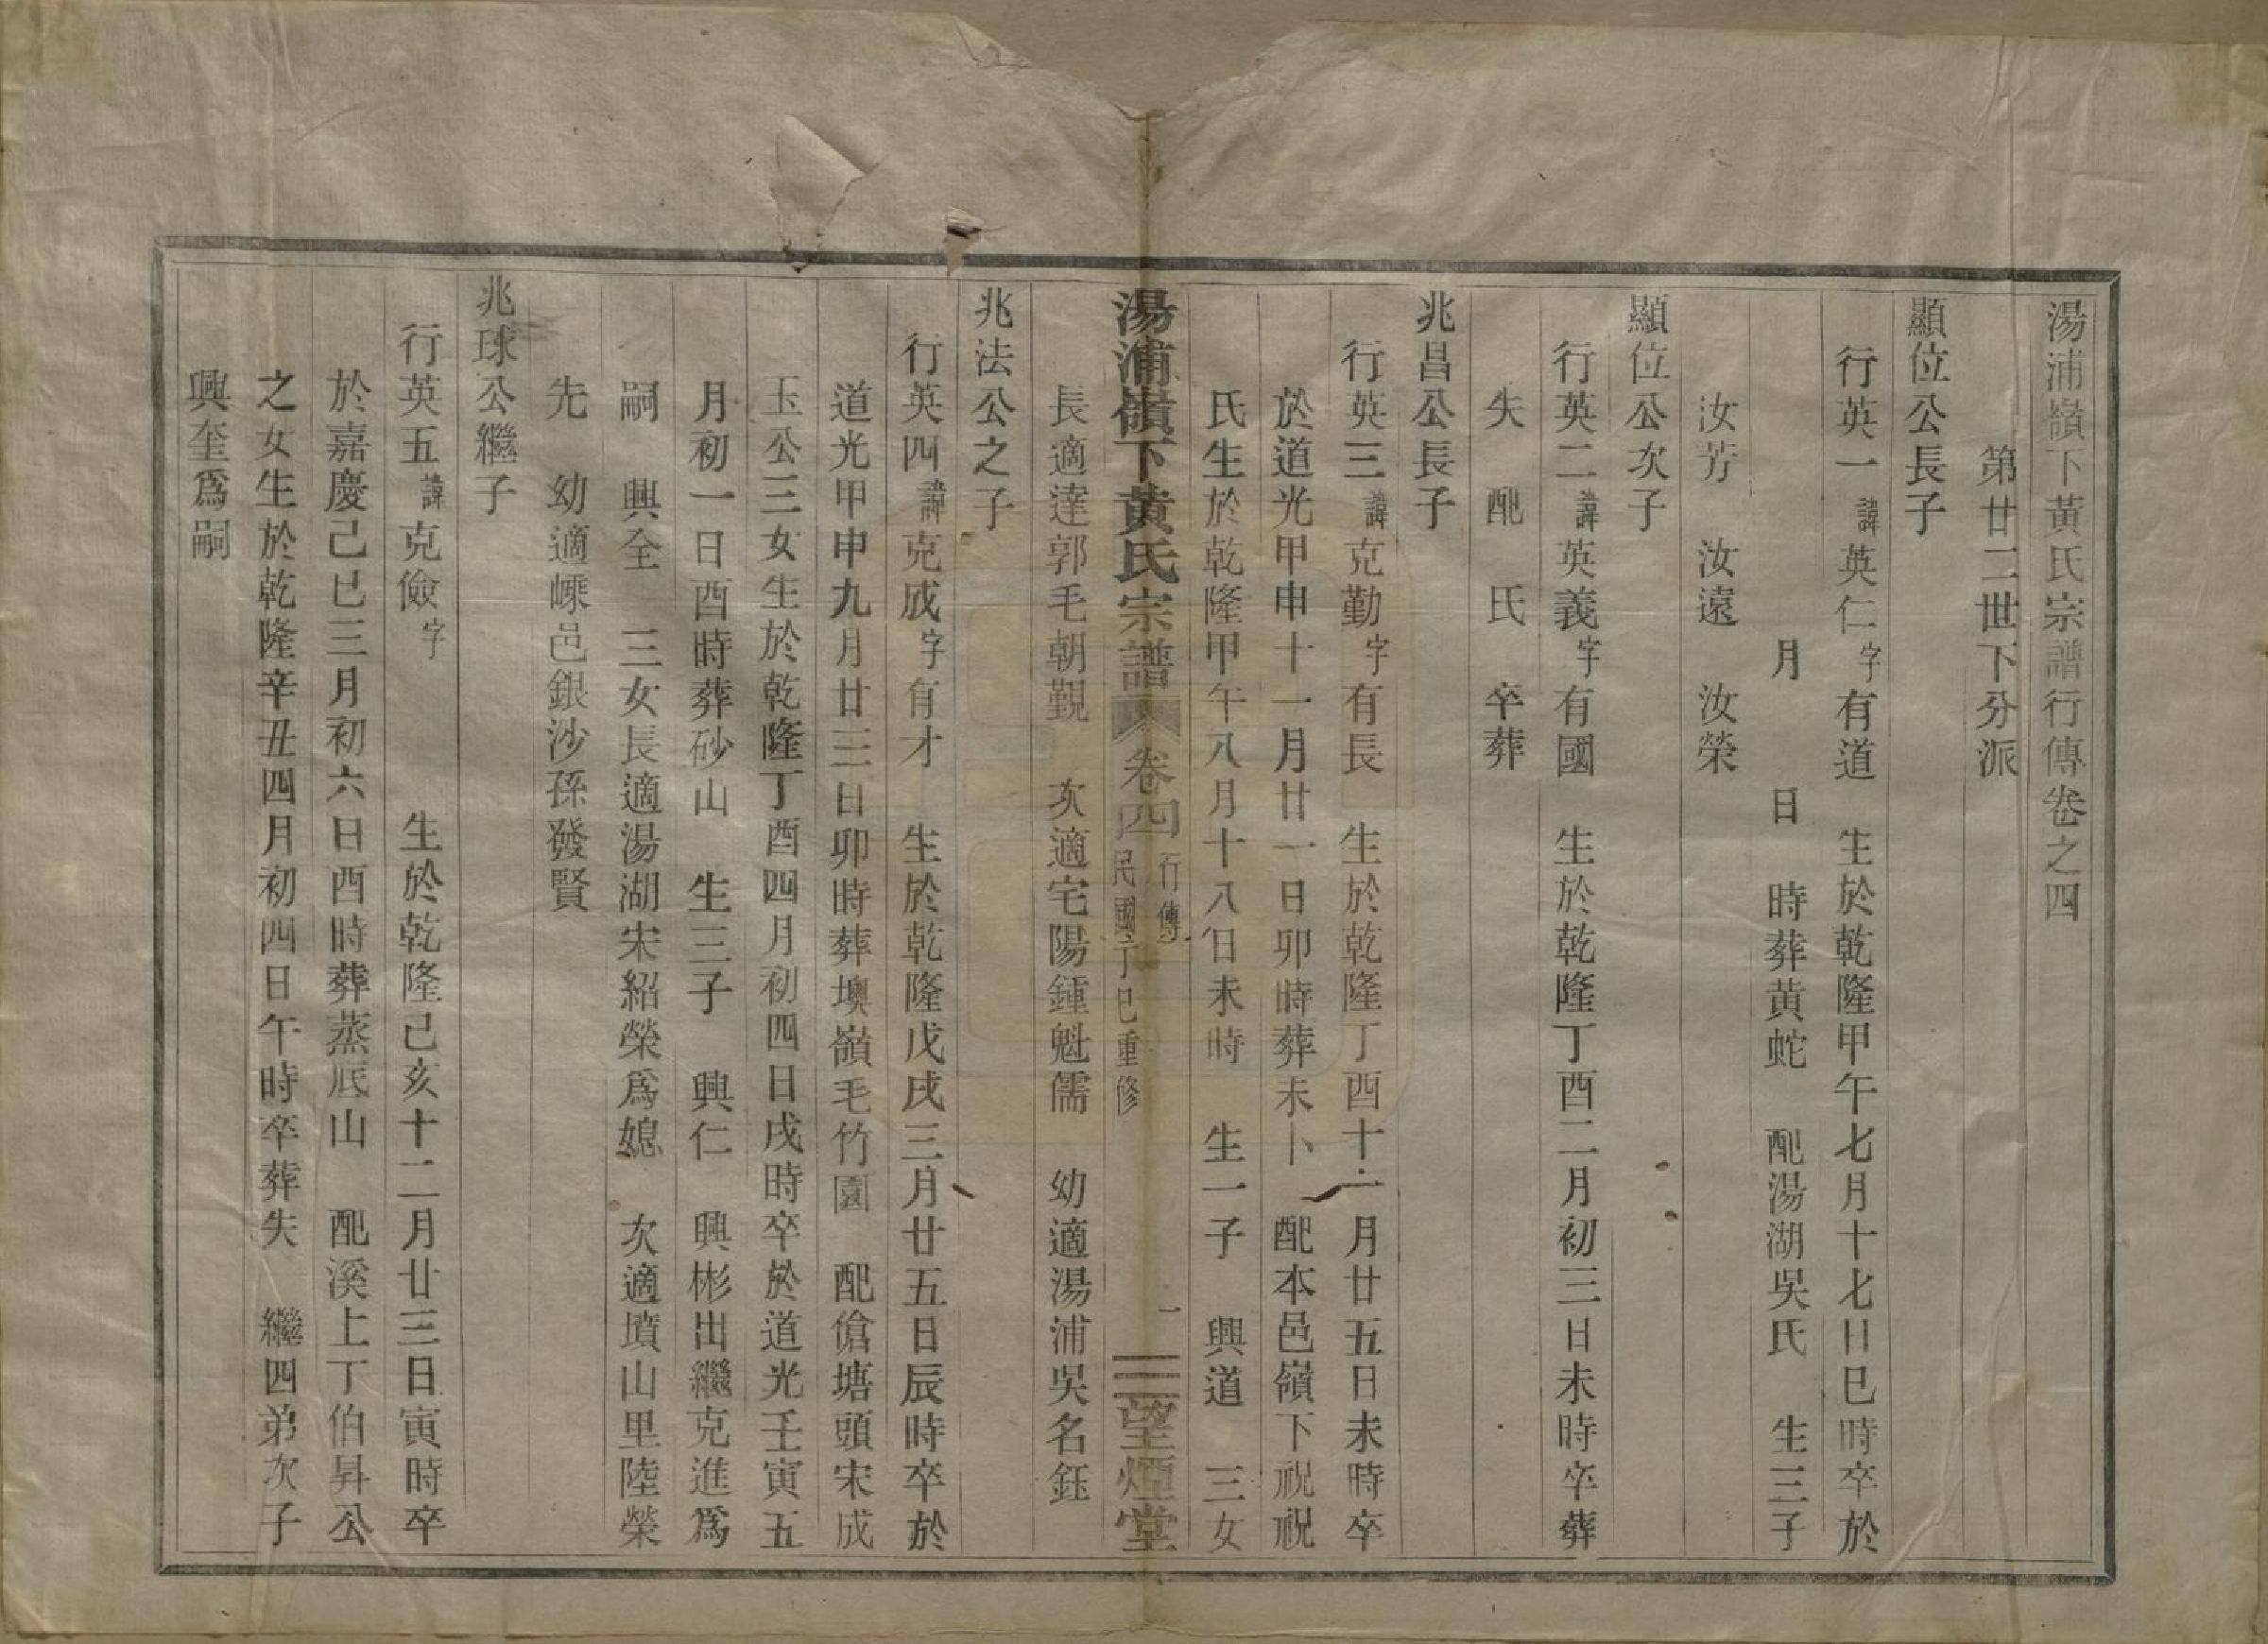 湯浦嶺下黃氏宗譜行傳卷之四
第廿二世下分派
顯位公長子
行英一諱英仁字有道 生於乾隆甲午七月十七日巳時卒於
月 日 時葬黃蛇 配湯湖吳氏 生三子
汝芳 汝遠 汝榮
顯位公次子
行英二諱英義字有國 生於乾隆丁酉二月初三日未時卒葬
失 配 氏 卒葬
兆昌公長子
行英三諱克勤字有長 生於乾隆丁酉十二月廿五日未時卒
於道光甲申十一月廿一日卯時葬未卜 配本邑嶺下祝祝
氏生於乾隆甲午八月十八日未時 生一子 興道 三女
湯浦嶺下黃氏宗譜 卷四 行傳 民國丁巳重修 一 望煙堂
長適達郭毛朝覲 次適宅陽鍾魁儒 幼適湯浦吳名鈺
兆法公之子
行英四諱克成字有才 生於乾隆戊戌三月廿五日辰時卒於
道光甲申九月廿三日卯時葬墺嶺毛竹園 配傖塘頭宋成
玉公三女生於乾隆丁酉四月初四日戌時卒於道光壬寅五
月初一日酉時葬砂山 生三子 興仁 興彬出繼克進爲
嗣 興全 三女長適湯湖宋紹榮爲媳 次適墳山里陸榮
先 幼適嵊邑銀沙孫發賢
兆球公繼子
行英五諱克儉字 生於乾隆己亥十二月廿三日寅時卒
於嘉慶己巳三月初六日酉時葬蒸底山 配溪上丁伯昇公
之女生於乾隆辛丑四月初四日午時卒葬失 繼四弟次子
興奎爲嗣